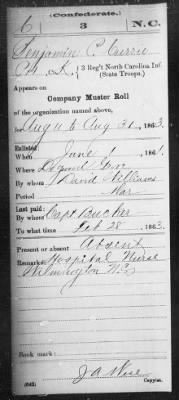 (Confederate.)
6 3 N.C.
Benjamin C. Currie
Co. K, 3 Reg't North Carolina Inf
(State Troops.)
Appears on
Company Muster Roll
of the organization named above,
for Aug 11 to Aug 31, 1863.
Enlisted:
When June 1, 1861.
Where
By whom David Williams
Period War
Last paid:
By whom Capt
To what time Feb 28, 1863.
Present or absent Absent
Remarks: Hospital Nurse
Wilmington N.C.
Book mark:
(642) Copyist.